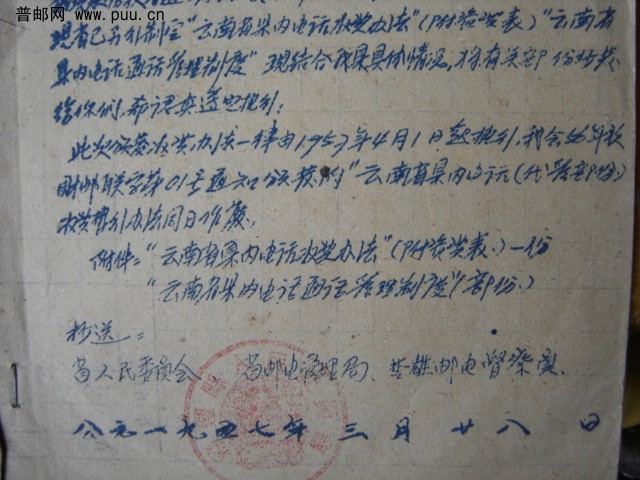 普邮网
www.puu.cn
现省已另行制定“云南省县内电话收费办法”(附资费表)“云南省
县内电话通话管理制度”现结合我县具体情况,将有关部份抄发
给你们,希认真遵照执行:
此次颁发收费办法一律由1957年4月1日起执行,我会56年秋
财邮联字第01号通知颁发的“云南省县内电话(代管部份)
收费暂行办法同日作废。
附件:“云南省县内电话收费办法”(附资费表)一份
“云南省县内电话通话管理制度”(部份)
抄送:
省人民委员会、省邮电管理局、楚雄邮电督察员。
公元一九五七年三月廿八日